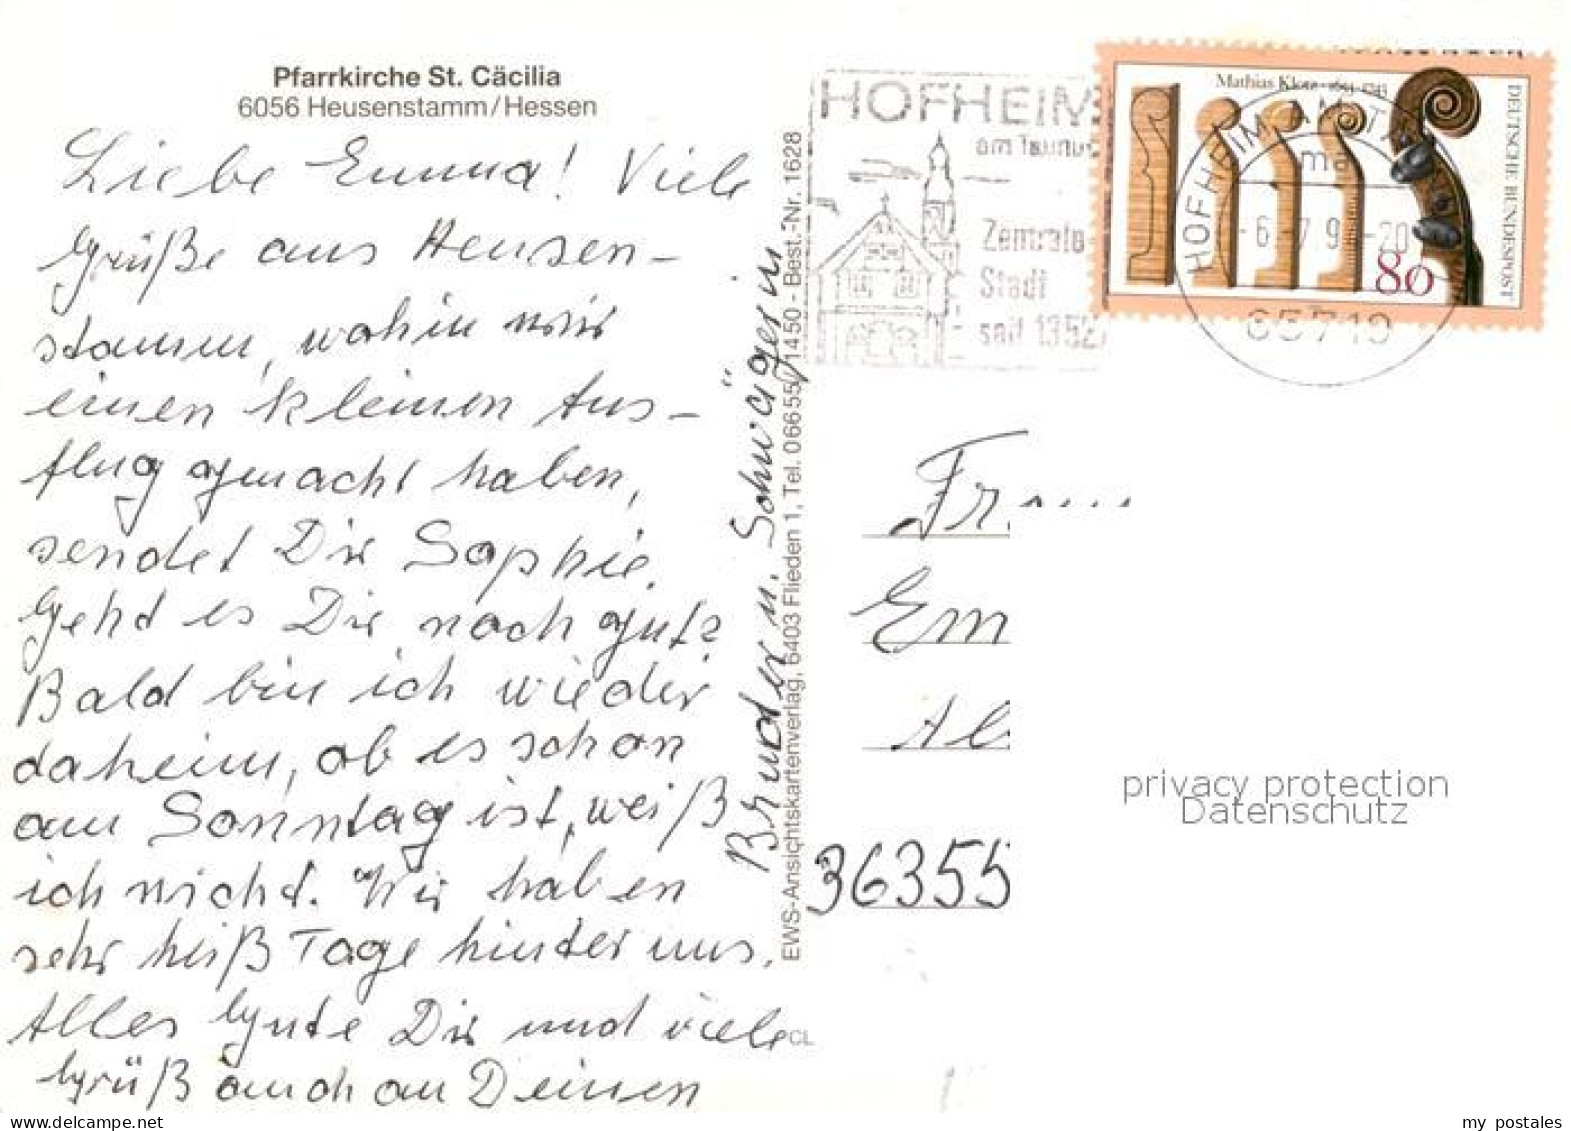 Pfarrkirche St. Cäcilia
6056 Heusenstamm/Hessen
Liebe Emma! Viele
Grüße aus Heusen-
stamm, wohin wir
einen kleinen Aus-
flug gemacht haben,
sendet Dir Sophie.
Gehd es Dir noch gut?
Bald bin ich wieder
daheim, ob es schon
am Sonntag ist, weiß
ich nicht. Wir haben
sehr heiß Tage hinter uns.
Alles Gute Dir und viele
Grüß auch an Deinen
Bruder u. Schwägerin
EWS-Ansichtskartenverlag, 6403 Flieden 1, Tel. 06655/1450 - Best.-Nr. 1628
CL
HOFHEIM
am Taunus
Zentrale
Stadt
seit 1352
Mathias Klotz 1653-1743
DEUTSCHE BUNDESPOST
80
HOFHEIM AM TA
ma
-6.-7.9 -20
65719
Frau
Em
Al
36355
privacy protection
Datenschutz
www.delcampe.net
my_postales